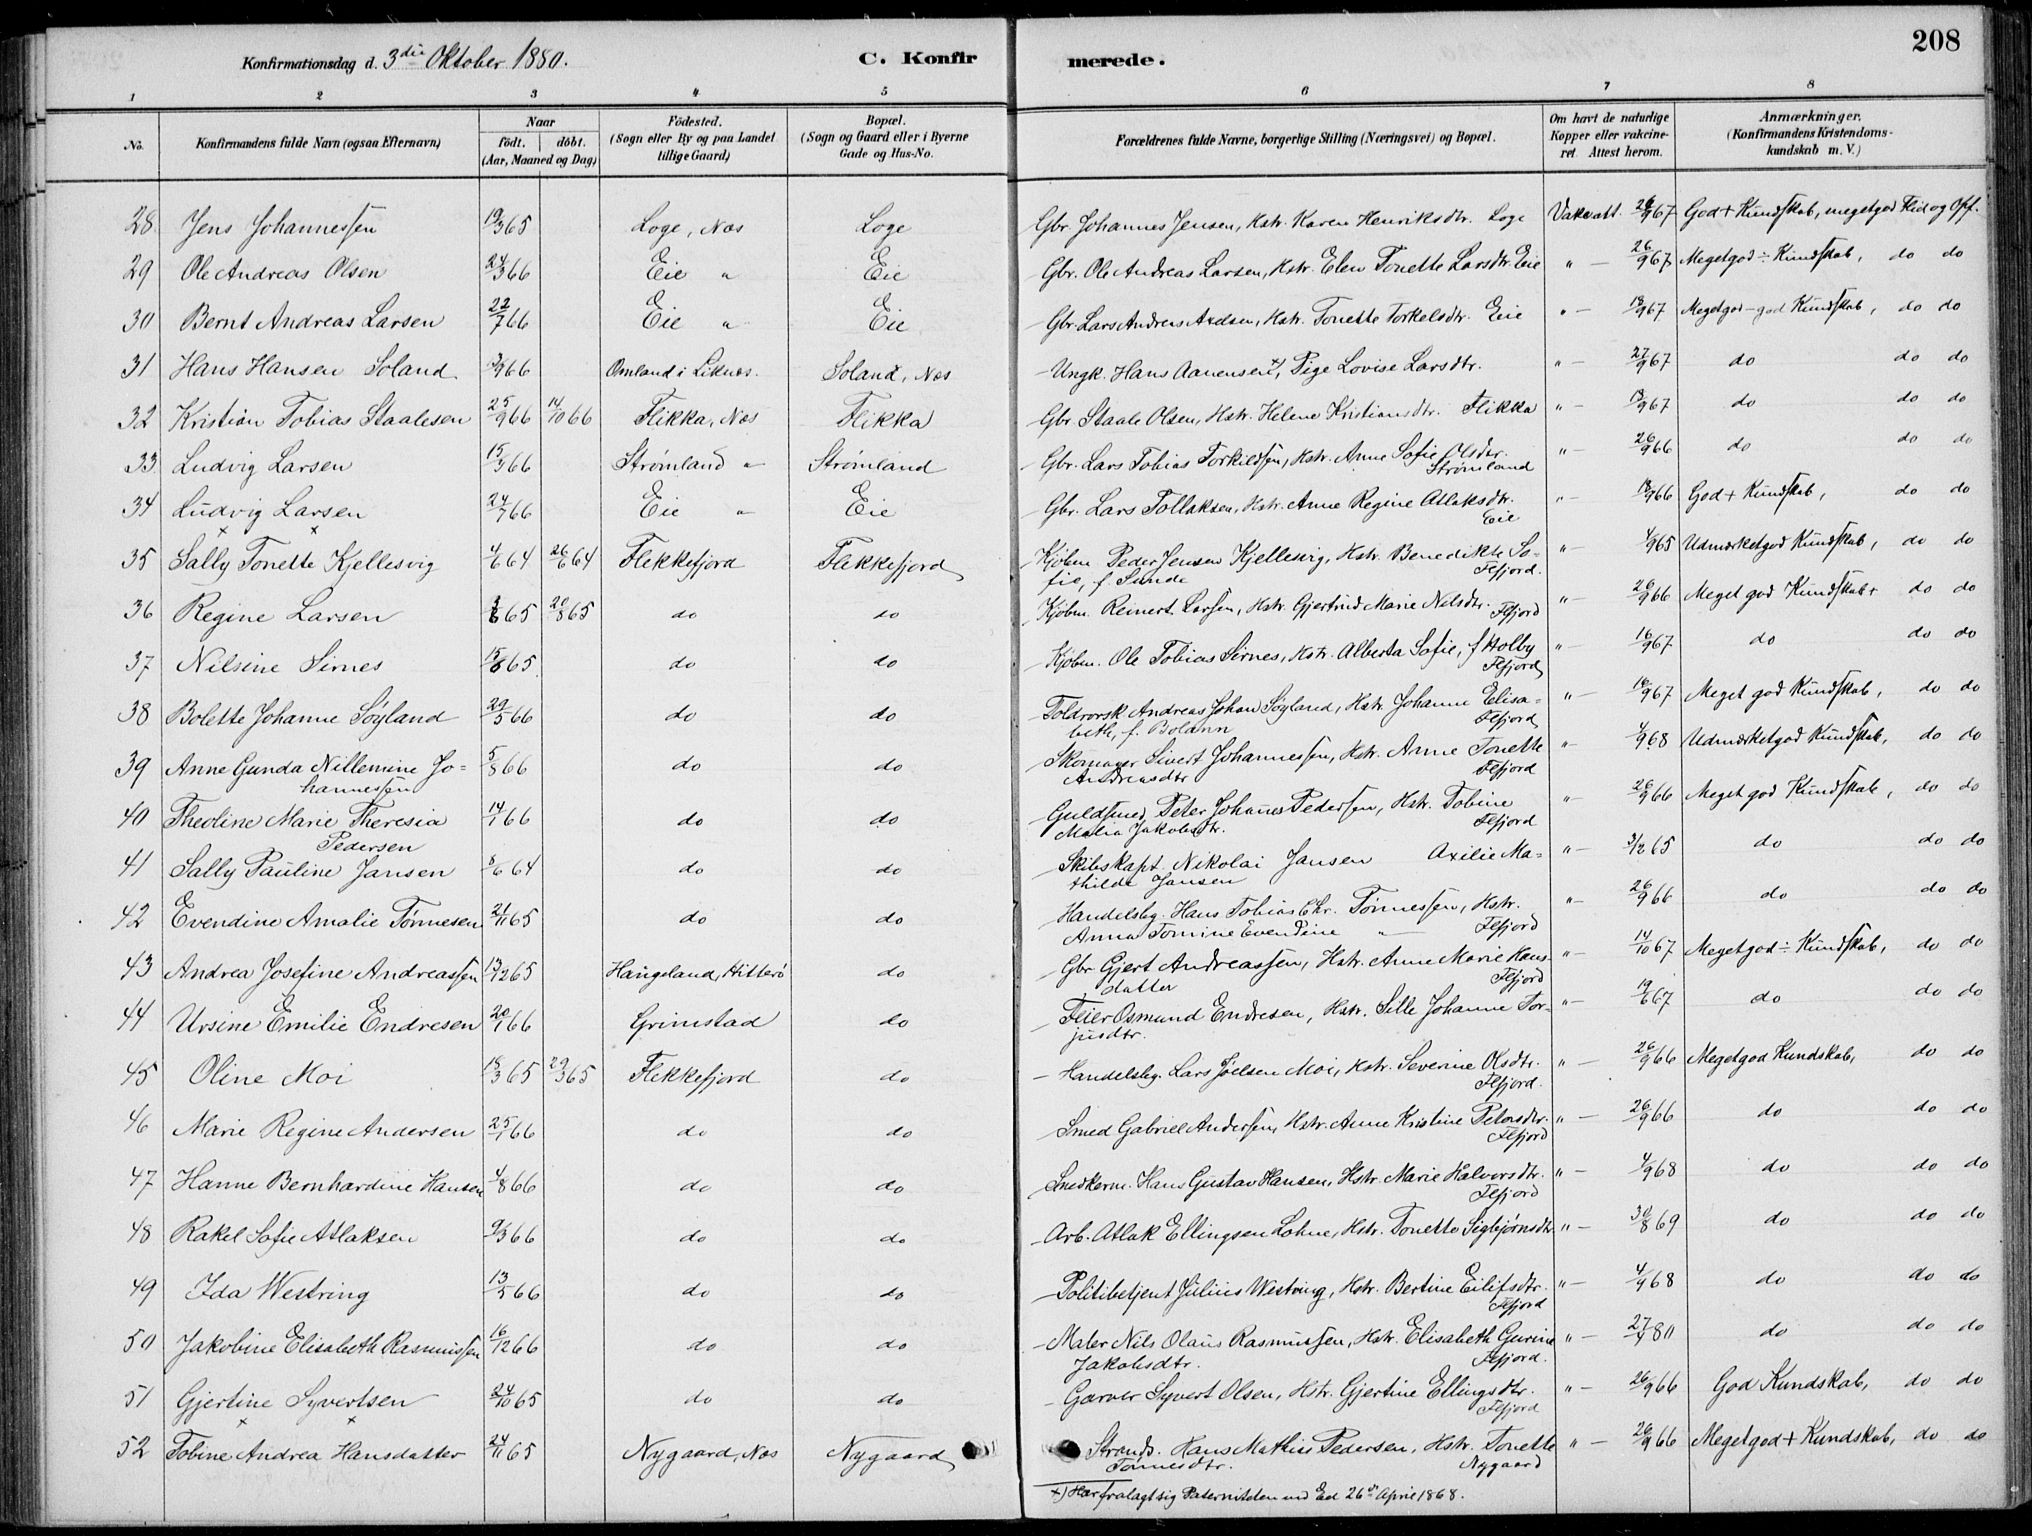 208
Konfirmationsdag d. 3die Oktober 1880. C. Konfir merede.
1 2 3 4 5 6 7 8
No. Konfirmandens fulde Navn (ogsaa Efternavn) Naar födt. döbt. (Aar, Maaned og Dag) Födested. (Sogn eller By og paa Landet tillige Gaard) Bopæl. (Sogn og Gaard eller i Byerne Gade og Hus-No. Forældrenes fulde Navne, borgerlige Stilling (Næringsvei) og Bopæl. Om havt de naturlige Kopper eller vakcineret. Attest herom. Anmærkninger. (Konfirmandens Kristendomskundskab m. V.)
28 Jens Johannessen 19/3 65 Loge, Næs Loge Gbr. Johannes Jensen, Hstr. Karen Henriksdtr. Loge Vakc.att. 26/9 67 God + Kundskab, megetgod Flid og Opf.
29 Ole Andreas Olsen 24/3 66 Eie " Eie Gbr. Ole Andreas Larsen, Hstr. Elen Tonette Larsdtr. Eie " — 26/9 67 Megetgod ÷ Kundskab, do do
30 Bernt Andreas Larsen 22/7 66 Eie " Eie Gbr. Lars Andreas Axelsen, Hstr. Tonette Torkelsdtr. Eie " — 18/9 67 Megetgod - god Kundskab, do do
31 Hans Hansen Soland 3/9 66 Omland i Liknes. Soland, Næs Ungk. Hans Aanensen x), Pige Lovise Larsdtr. " — 27/9 67 do do do
32 Kristian Tobias Staalesen 25/9 66 14/10 66 Flikka, Næs Flikka Gbr. Staale Olsen, Hstr. Helene Kristiansdtr. Flikka " — 18/9 67 do do do
33 Ludvig Larsen 15/3 66 Strømland " Strømland Gbr. Lars Tobias Torkildsen, Hstr. Anne Sofie Olsdtr. " — 26/9 66 do do do
Strømland
34 Ludvig Larsen 24/7 66 Eie " Eie Gbr. Lars Tollaksen, Hstr. Anne Regine Atlaksdtr. " — 18/9 66 God + Kundskab, do do
x x Eie
35 Sally Tonette Kjellesvig 4/6 64 26/6 64 Flekkefjord Flekkefjord Kjøbm. Peder Jensen Kjellesvig, Hstr. Benedikte So- " — 4/9 65 Udmærketgod Kundskab, do do
fie, f. Sunde Flfjord.
36 Regine Larsen 65 20/8 65 do do Kjøbm. Reinert Larsen, Hstr. Gjertrud Marie Nilsdtr. " — 26/9 66 Meget god Kundskab + do do
Flfjord
37 Nilsine Sirnes 15/8 65 do do Kjøbm. Ole Tobias Sirnes, Hstr. Alberta Sofie, f. Holby " — 16/9 67 do do do
Flfjord
38 Bolette Johanne Søyland 29/5 66 do do Toldrorsk. Andreas Johan Søyland, Hstr. Johanne Elisa- " — 18/9 67 Meget god Kundskab, do do
beth, f. Bolann Flfjord
39 Anne Gunda Nillemine Jo- 5/8 66 do do Skomager Sivert Johannessen, Hstr. Anne Tonette " — 4/9 68 Udmærketgod Kundskab, do do
hannessen Andreasdtr Flfjord
40 Theoline Marie Theresia 14/1 66 do do Guldsmed Peter Johannes Pedersen, Hstr. Tobine " — 26/9 66 Meget god Kundskab, do do
Pedersen Malia Jakobsdtr. Flfjord
41 Sally Pauline Jansen 8/6 64 do do Skibskapt. Nikolai Jansen Axilie Ma- " — 3/12 65 do do do
thilde Jansen
42 Evendine Amalie Tønnesen 21/11 65 do do Handelsbg. Hans Tobias Chr. Tønnessen, Hstr. " — 26/9 66 do do do
Anna Tomine Evendine " Flfjord
43 Andrea Josefine Andreassen 13/12 65 Haugeland, Hitterö do Gbr. Gjert Andreassen, Hstr. Anne Marie Hans- " — 14/10 67 Megetgod ÷ Kundskab, do do
datter Flfjord
44 Ursine Emilie Endresen 20/1 66 Grimstad do Feier Osmund Endresen, Hstr. Sille Johanne Tor- " — 19/6 67 do do do
jusdtr.
45 Oline Moi 18/3 65 29/3 65 Flekkefjord do Handelsbg. Lars Joelsen Moi, Hstr. Severine Olsdtr. " — 26/9 66 Megetgod Kundskab, do do
Flfjord.
46 Marie Regine Andersen 25/1 66 do do Smed Gabriel Andersen, Hstr. Anne Kristine Petersdtr. " — 26/9 66 do do do
Flfjord
47 Hanne Bernhardine Hansen 4/8 66 do do Snedkerm. Hans Gustav Hansen, Hstr. Marie Halvorsdtr. " — 4/9 68 do do do
Flfjord
48 Rakel Sofie Atlaksen 9/3 66 do do Arb. Atlak Ellingsen Lohne, Hstr. Tonette Sigbjørnsdtr " — 30/8 69 do do do
49 Ida Westring 13/5 66 do do Politibetjent Julius Westring, Hstr. Bertine Eilifsdtr. " — 4/9 68 do do do
Flfjord
50 Jakobine Elisabeth Rasmussen 16/12 66 do do Maler Nils Olaus Rasmussen, Hstr. Elisabeth Gurine " — 27/4 80 do do do
Jakobsdtr. Flfjord.
51 Gjertine Syvertsen 24/10 65 do do Garver Syvert Olsen, Hstr. Gjertine Ellingsdtr. " — 26/9 66 God Kundskab, do do
x x Flfjord
52 Tobine Andrea Hansdatter 24/11 65 Nygaard, Næs Nygaard Strands. Hans Mathias Pedersen, Hstr. Tonette " — 26/9 66 Megetgod + Kundskab, do do
Tønnesdtr. Nygaard
x) Har fralagt sig Paterniteten ved Ed 26de April 1868.